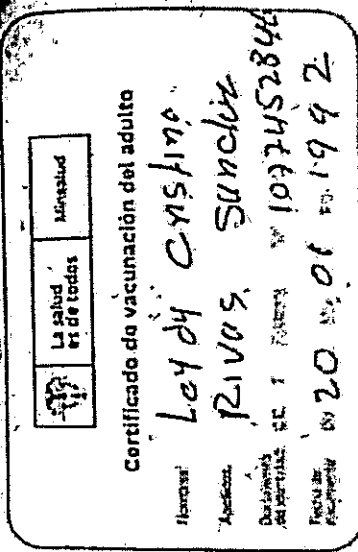 La salud es de todos Minsalud
Certificado de vacunación del adulto
Nombres Leydy Cristina
Apellidos Rivas Sanchez
Documento de identidad CC 1077452844
Fecha de nacimiento 20 01 1992